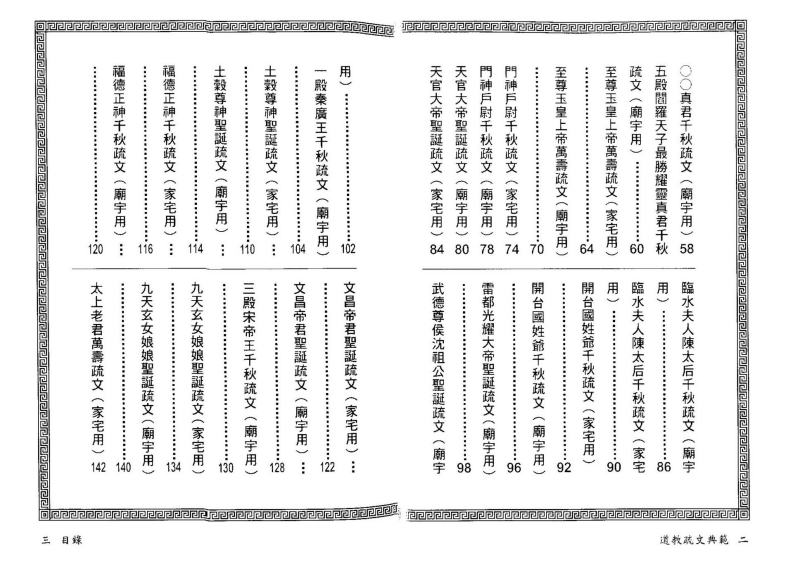 〇〇真君千秋疏文（廟宇用）58
五殿閻羅天子最勝耀靈真君千秋
疏文（廟宇用）………60
至尊玉皇上帝萬壽疏文（家宅用）
…………………64
至尊玉皇上帝萬壽疏文（廟宇用）
…………………70
門神戶尉千秋疏文（家宅用）74
門神戶尉千秋疏文（廟宇用）78
天官大帝聖誕疏文（家宅用）80
天官大帝聖誕疏文（廟宇用）84
臨水夫人陳太后千秋疏文（廟宇
用）…………………86
臨水夫人陳太后千秋疏文（家宅
用）…………………90
開台國姓爺千秋疏文（家宅用）
…………………92
開台國姓爺千秋疏文（廟宇用）
…………………96
雷都光耀大帝聖誕疏文（廟宇用）
…………………98
武德尊侯沈祖公聖誕疏文（廟宇
道教疏文典範 二
用）…………………102
一殿秦廣王千秋疏文（廟宇用）
…………………104
土穀尊神聖誕疏文（家宅用）…
…………………110
土穀尊神聖誕疏文（廟宇用）…
…………………114
福德正神千秋疏文（家宅用）…
…………………116
福德正神千秋疏文（廟宇用）…
…………………120
文昌帝君聖誕疏文（家宅用）…
…………………122
文昌帝君聖誕疏文（廟宇用）…
…………………128
三殿宋帝王千秋疏文（廟宇用）
…………………130
九天玄女娘娘聖誕疏文（家宅用）
…………………134
九天玄女娘娘聖誕疏文（廟宇用）
…………………140
太上老君萬壽疏文（家宅用）142
三 目錄